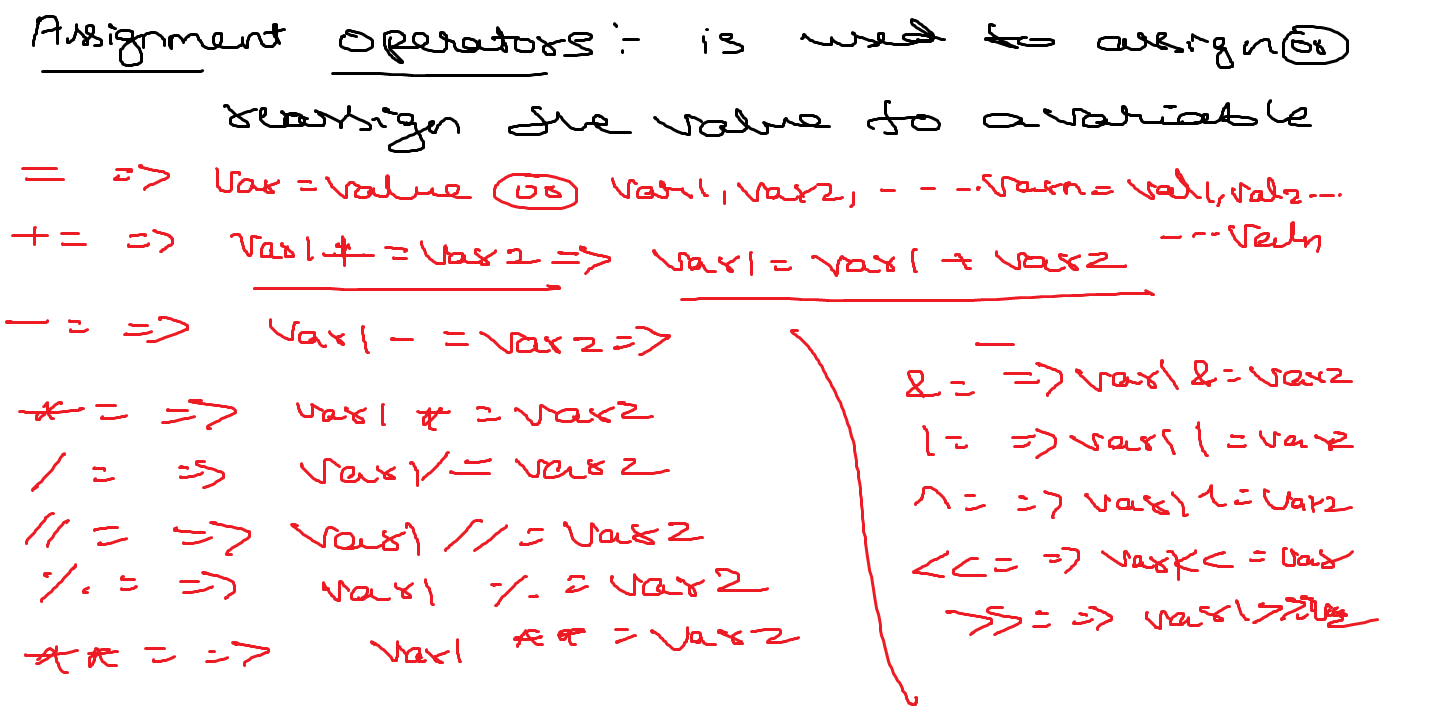 Assignment operators :- is used to assign (or)
reassign the value to a variable
= => Var = value (or) var1, var2, - - -.varn = val1, val2 ...
---Valn
+= => Var1 + = Var2 => var1 = var1 + var2
- = => Var1 - = Var2 =>
* = => var1 * = var2
/ = => var1 / = var2
// = => var1 // = Var2
% = => var1 % = var2
** = => Var1 ** = Var2
& = => var1 & = var2
| = => var1 | = var2
^ = => var1 ^ = Var2
<< = => var << = var
>> = => var1 >>